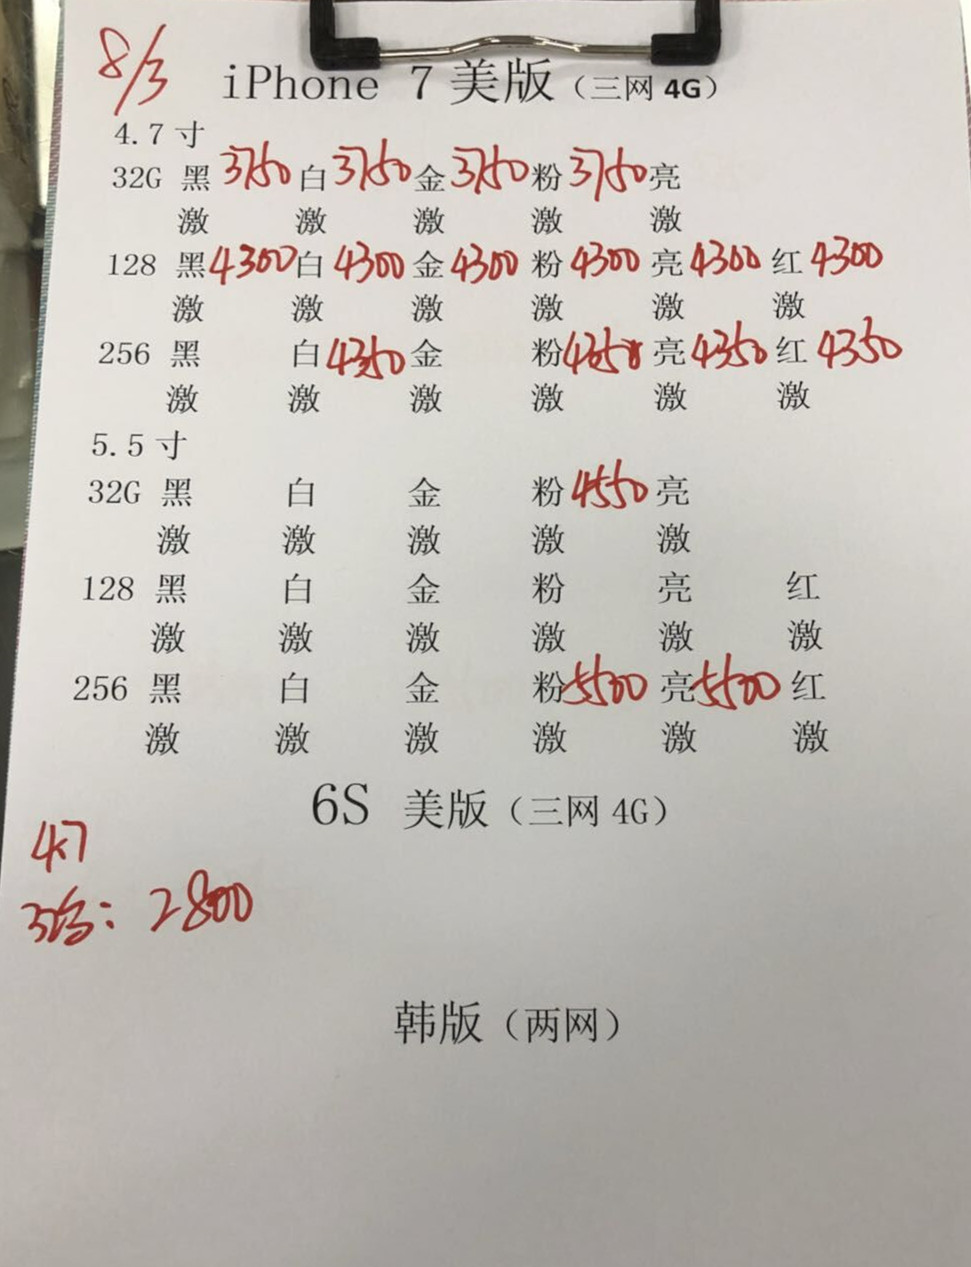 8/3
iPhone 7 美版（三网 4G）
4.7 寸
32G 黑 3750 白 3750 金 3750 粉 3750 亮
激 激 激 激 激
128 黑 4300 白 4300 金 4300 粉 4300 亮 4300 红 4300
激 激 激 激 激 激
256 黑 白 4350 金 粉 4350 亮 4350 红 4350
激 激 激 激 激 激
5.5 寸
32G 黑 白 金 粉 4550 亮
激 激 激 激 激
128 黑 白 金 粉 亮 红
激 激 激 激 激 激
256 黑 白 金 粉 5500 亮 5500 红
激 激 激 激 激 激
6S 美版（三网 4G）
4.7
: 2800
韩版（两网）